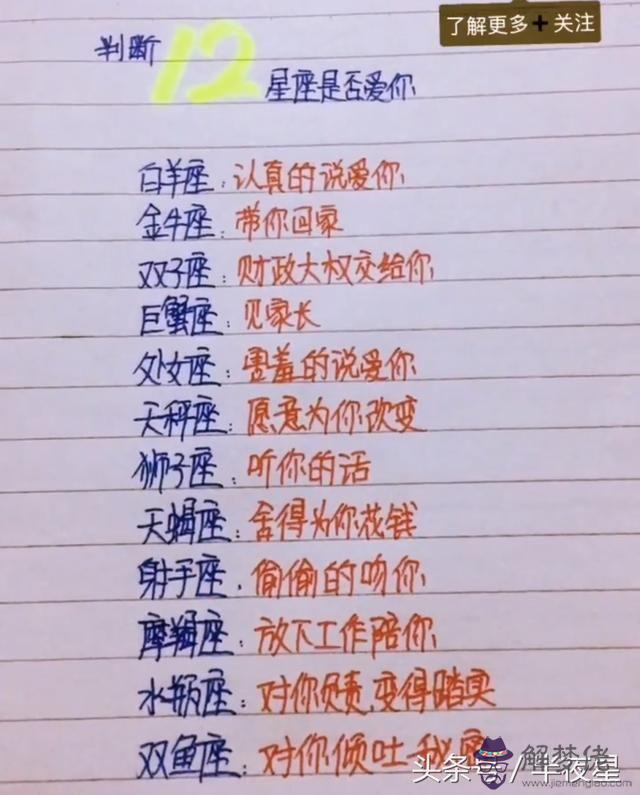 了解更多+关注
判断12
星座是否爱你
白羊座：认真的说爱你
金牛座：带你回家
双子座：财政大权交给你
巨蟹座：见家长
处女座：害羞的说爱你
天秤座：愿意为你改变
狮子座：听你的话
天蝎座：舍得为你花钱
射手座：偷偷的吻你
摩羯座：放下工作陪你
水瓶座：对你负责,变得踏实
双鱼座：对你倾吐
头条号/半夜星
解梦佬
www.jiemenglao.com